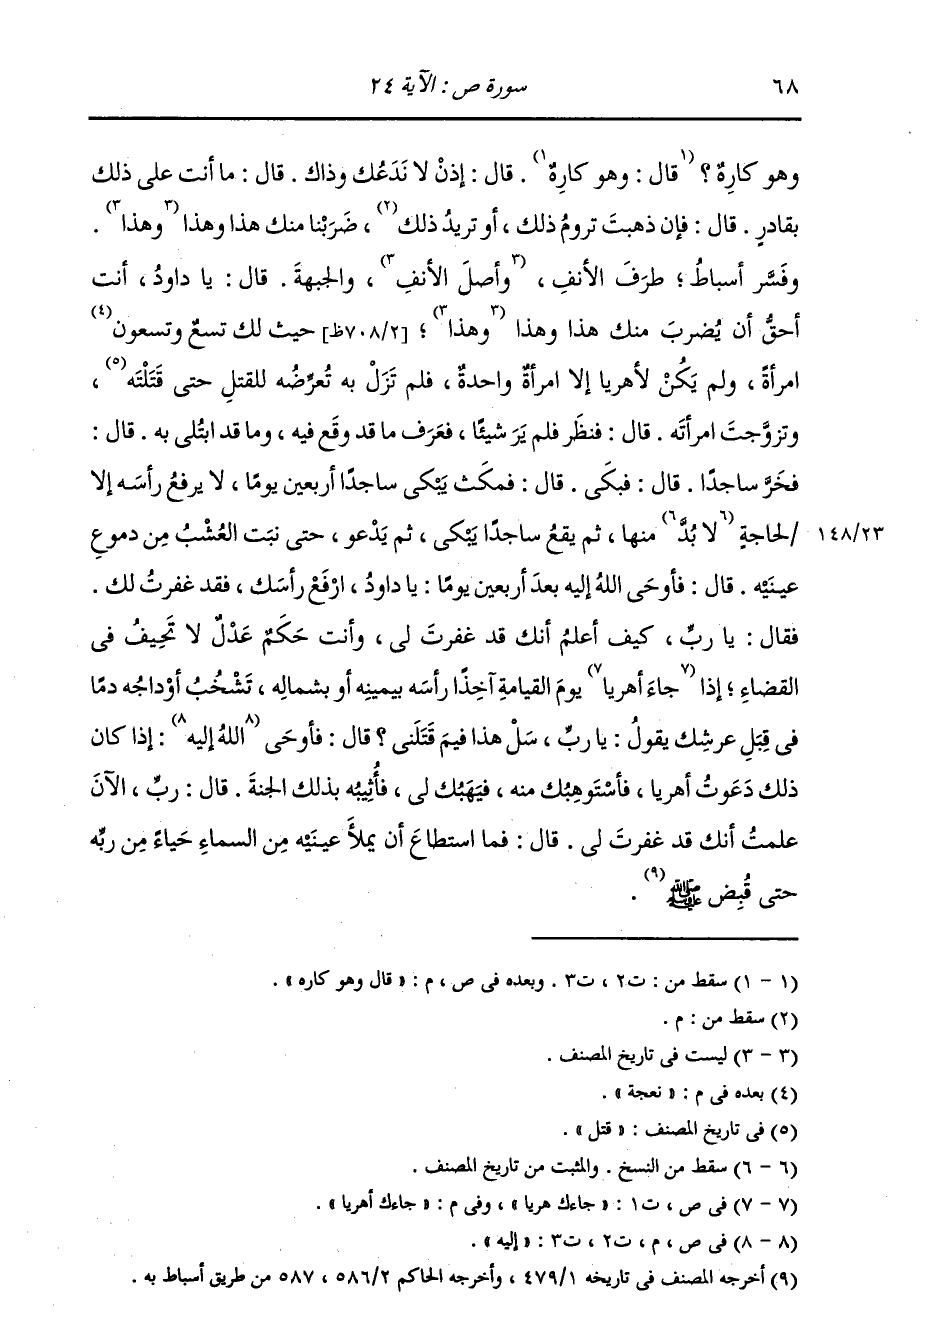 ٦٨ سورة ص : الآية ٢٤
وهو كارِهٌ ؟ (١قال : وهو كارِهٌ١) . قال : إذنْ لا نَدَعُك وذاك . قال : ما أنت على ذلك
بقادرٍ . قال : فإن ذهبتَ ترومُ ذلك ، أو تريدُ ذلك(٢) ، ضَرَبْنا منك هذا وهذا (٣وهذا٣) .
وفَسَّر أسباطُ ؛ طرَفَ الأنفِ ، (٣وأصلَ الأنفِ٣) ، والجبهةَ . قال : يا داودُ ، أنت
أحقُّ أن يُضربَ منك هذا وهذا (٣وهذا٣) ؛ [٧٠٨/٢ظ] حيث لك تسعٌ وتسعون(٤)
امرأةً ، ولم يَكُنْ لأهريا إلا امرأةٌ واحدةٌ ، فلم تَزَلْ به تُعرِّضُه للقتلِ حتى قَتَلْتَه(٥) ،
وتزوَّجتَ امرأتَه . قال : فنظَر فلم يَرَ شيئًا ، فعَرَف ما قد وقَع فيه ، وما قد ابتُلى به . قال :
فخَرَّ ساجدًا . قال : فبكَى . قال : فمكَث يَبْكى ساجدًا أربعين يومًا ، لا يرفعُ رأسَه إلا
١٤٨/٢٣ /لحاجةٍ (٦لا بُدَّ٦) منها ، ثم يقعُ ساجدًا يَبْكى ، ثم يَدْعو ، حتى نبَت العُشْبُ مِن دموعِ
عينَيْه . قال : فأوحَى اللهُ إليه بعدَ أربعين يومًا : يا داودُ ، ارْفَعْ رأسَك ، فقد غفرتُ لك .
فقال : يا ربِّ ، كيف أعلمُ أنك قد غفرتَ لى ، وأنت حَكَمٌ عَدْلٌ لا تَحِيفُ فى
القضاءِ ؛ إذا (٧جاءَ أهريا٧) يومَ القيامةِ آخِذًا رأسَه بيمينِه أو بشمالِه ، تَشْخُبُ أوْداجُه دمًا
فى قِبَلِ عرشِك يقولُ : يا ربِّ ، سَلْ هذا فيمَ قَتَلَنى ؟ قال : فأوحَى (٨اللهُ إليه٨) : إذا كان
ذلك دَعَوتُ أهريا ، فأسْتَوهِبُك منه ، فيَهَبُك لى ، فأُثِيبُه بذلك الجنةَ . قال : ربِّ ، الآنَ
علمتُ أنك قد غفرتَ لى . قال : فما استطاعَ أن يملأَ عينَيْه مِن السماءِ حَياءً مِن ربِّه
حتى قُبِض ﷺ(٩) .
(١ - ١) سقط من : ت٢ ، ت٣ . وبعده فى ص ، م : « قال وهو كاره » .
(٢) سقط من : م .
(٣ - ٣) ليست فى تاريخ المصنف .
(٤) بعده فى م : « نعجة » .
(٥) فى تاريخ المصنف : « قتل » .
(٦ - ٦) سقط من النسخ . والمثبت من تاريخ المصنف .
(٧ - ٧) فى ص ، ت١ : « جاءك هريا » ، وفى م : « جاءك أهريا » .
(٨ - ٨) فى ص ، م ، ت٢ ، ت٣ : « إليه » .
(٩) أخرجه المصنف فى تاريخه ٤٧٩/١ ، وأخرجه الحاكم ٥٨٦/٢ ، ٥٨٧ من طريق أسباط به .